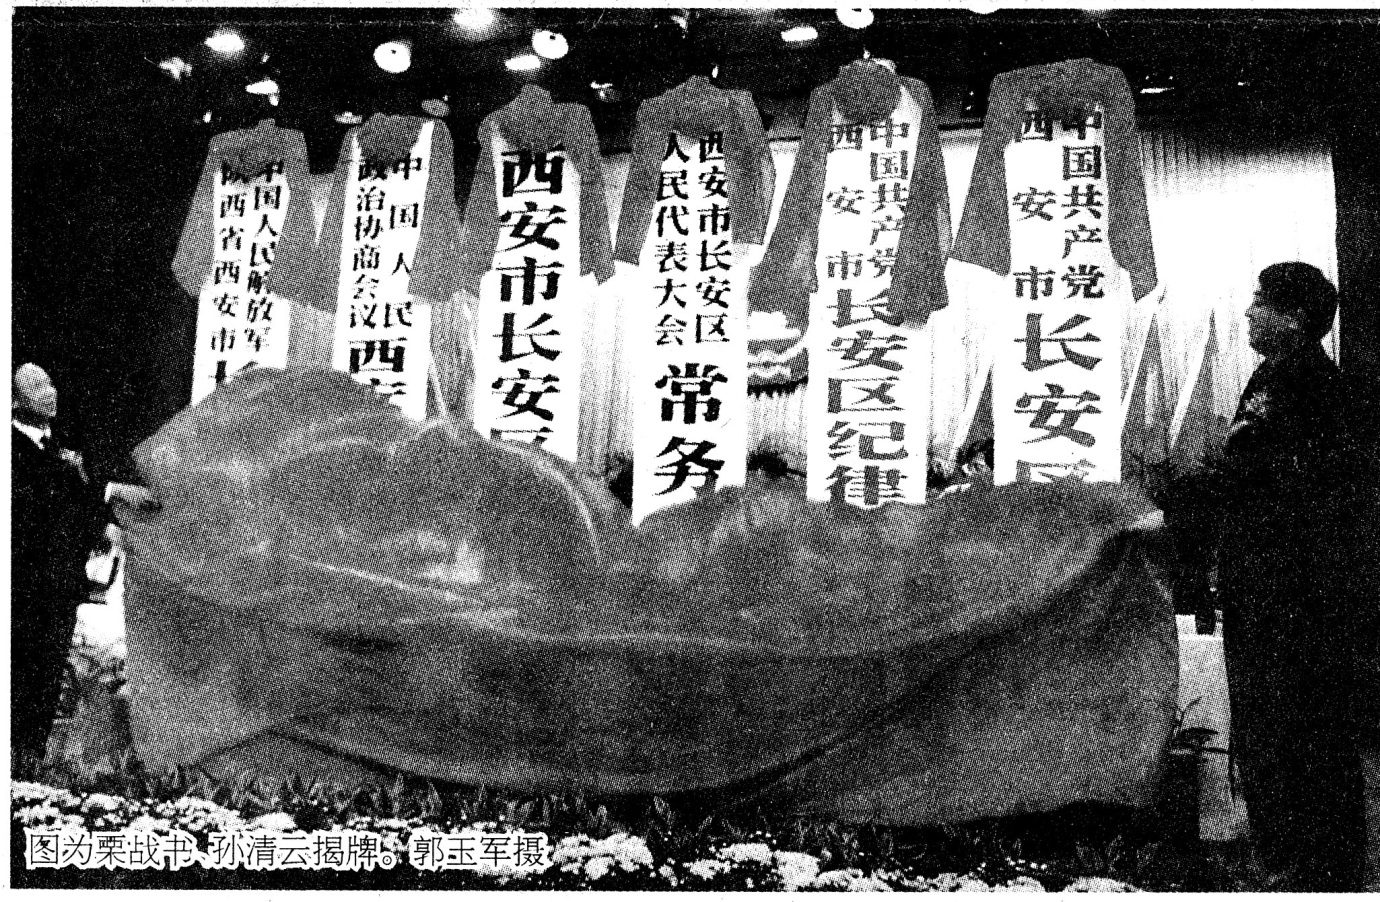 中国共产党
西安市长安区
中国共产党
西安市长安区纪律
西安市长安区
人民代表大会
常务
西安市长安区
中国人民
政治协商会议西安
中国人民解放军
陕西省西安市长
图为栗战书、孙清云揭牌。郭玉军摄